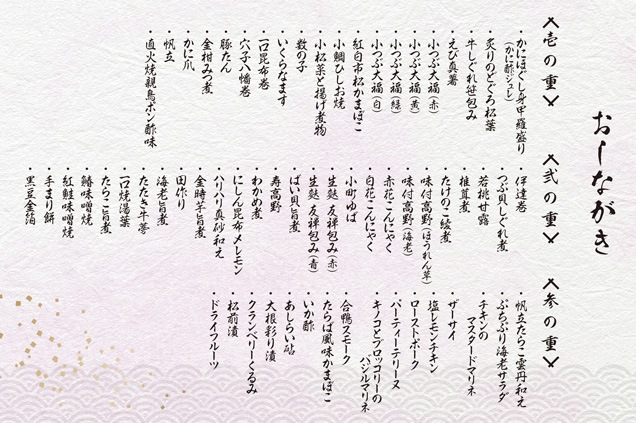 おしながき
壱の重
・かにほぐし身甲羅盛り
(かに酢ジュレ)
・炙りのどぐろ松葉
・牛しぐれ笹包み
・えび真薯
・小つぶ大福(赤)
・小つぶ大福(黄)
・小つぶ大福(緑)
・小つぶ大福(白)
・紅白市松かまぼこ
・小鯛ひしお焼
・小松菜と揚げ煮物
・数の子
・いくらなます
・一口昆布巻
・穴子八幡巻
・豚たん
・金柑みつ煮
・かに爪
・帆立
・直火焼親鳥ポン酢味
弐の重
・伊達巻
・つぶ貝しぐれ煮
・若桃甘露
・椎茸煮
・たけのこ綾煮
・味付高野(ほうれん草)
・味付高野(海老)
・赤花こんにゃく
・白花こんにゃく
・小町ゆば
・生麩 友禅包み(赤)
・生麩 友禅包み(青)
・ばい貝旨煮
・寿高野
・わかめ煮
・にしん昆布〆レモン
・ハリハリ真砂和え
・金時芋旨煮
・田作り
・海老旨煮
・たたき牛蒡
・一口焼湯葉
・たらこ旨煮
・鰆味噌焼
・紅鮭味噌焼
・手まり餅
・黒豆金箔
参の重
・帆立たらこ雲丹和え
・ぷちぷり海老サラダ
・チキンの
マスタードマリネ
・ザーサイ
・塩レモンチキン
・ローストポーク
・パーティーテリーヌ
・キノコとブロッコリーの
バジルマリネ
・合鴨スモーク
・たらば風味かまぼこ
・いか酢
・あしらい砧
・大根彩り漬
・クランベリーくるみ
・松前漬
・ドライフルーツ